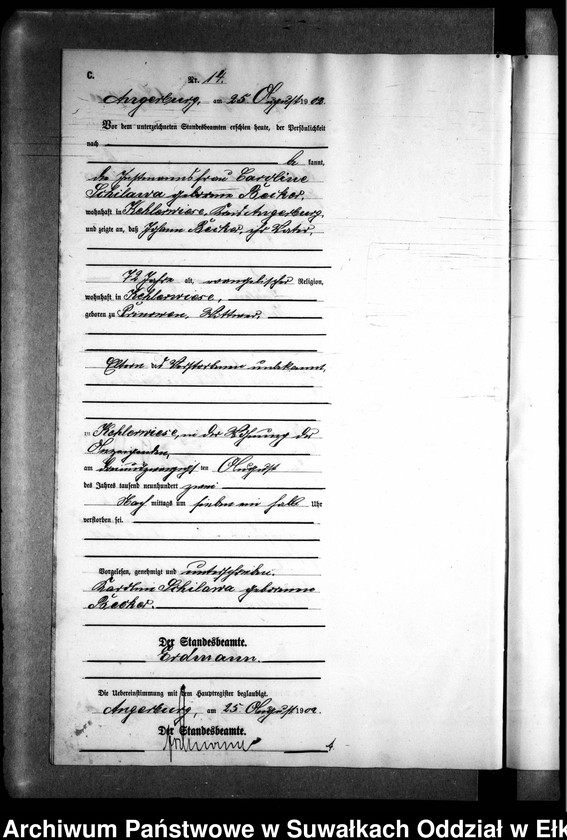 C.
Nr. 14.
Angerburg, am 25. August 1902.
Vor dem unterzeichneten Standesbeamten erschien heute, der Persönlichkeit
nach
be kannt,
die Instmannsfrau Caroline
Schilawa geborene Becker,
wohnhaft in Kehlerwiese, Kreis Angerburg,
und zeigte an, daß Johann Becker, ihr Vater,
72 Jahre alt, evangelischer Religion,
wohnhaft in Kehlerwiese,
geboren zu Prinowen, Wittwer,
Eltern des Verstorbenen unbekannt,
zu Kehlerwiese, in der Wohnung der
Anzeigenden,
am dreiundzwanzigsten August
des Jahres tausend neunhundert zwei
Nach mittags um sieben ein halb Uhr
verstorben sei.
Vorgelesen, genehmigt und unterschrieben.
Karoline Schilawa geborene
Becker.
Der Standesbeamte.
Erdmann.
Die Uebereinstimmung mit dem Hauptregister beglaubigt.
Angerburg, am 25. August 1902.
Der Standesbeamte.
Erdmann
Archiwum Państwowe w Suwałkach Oddział w Ełk